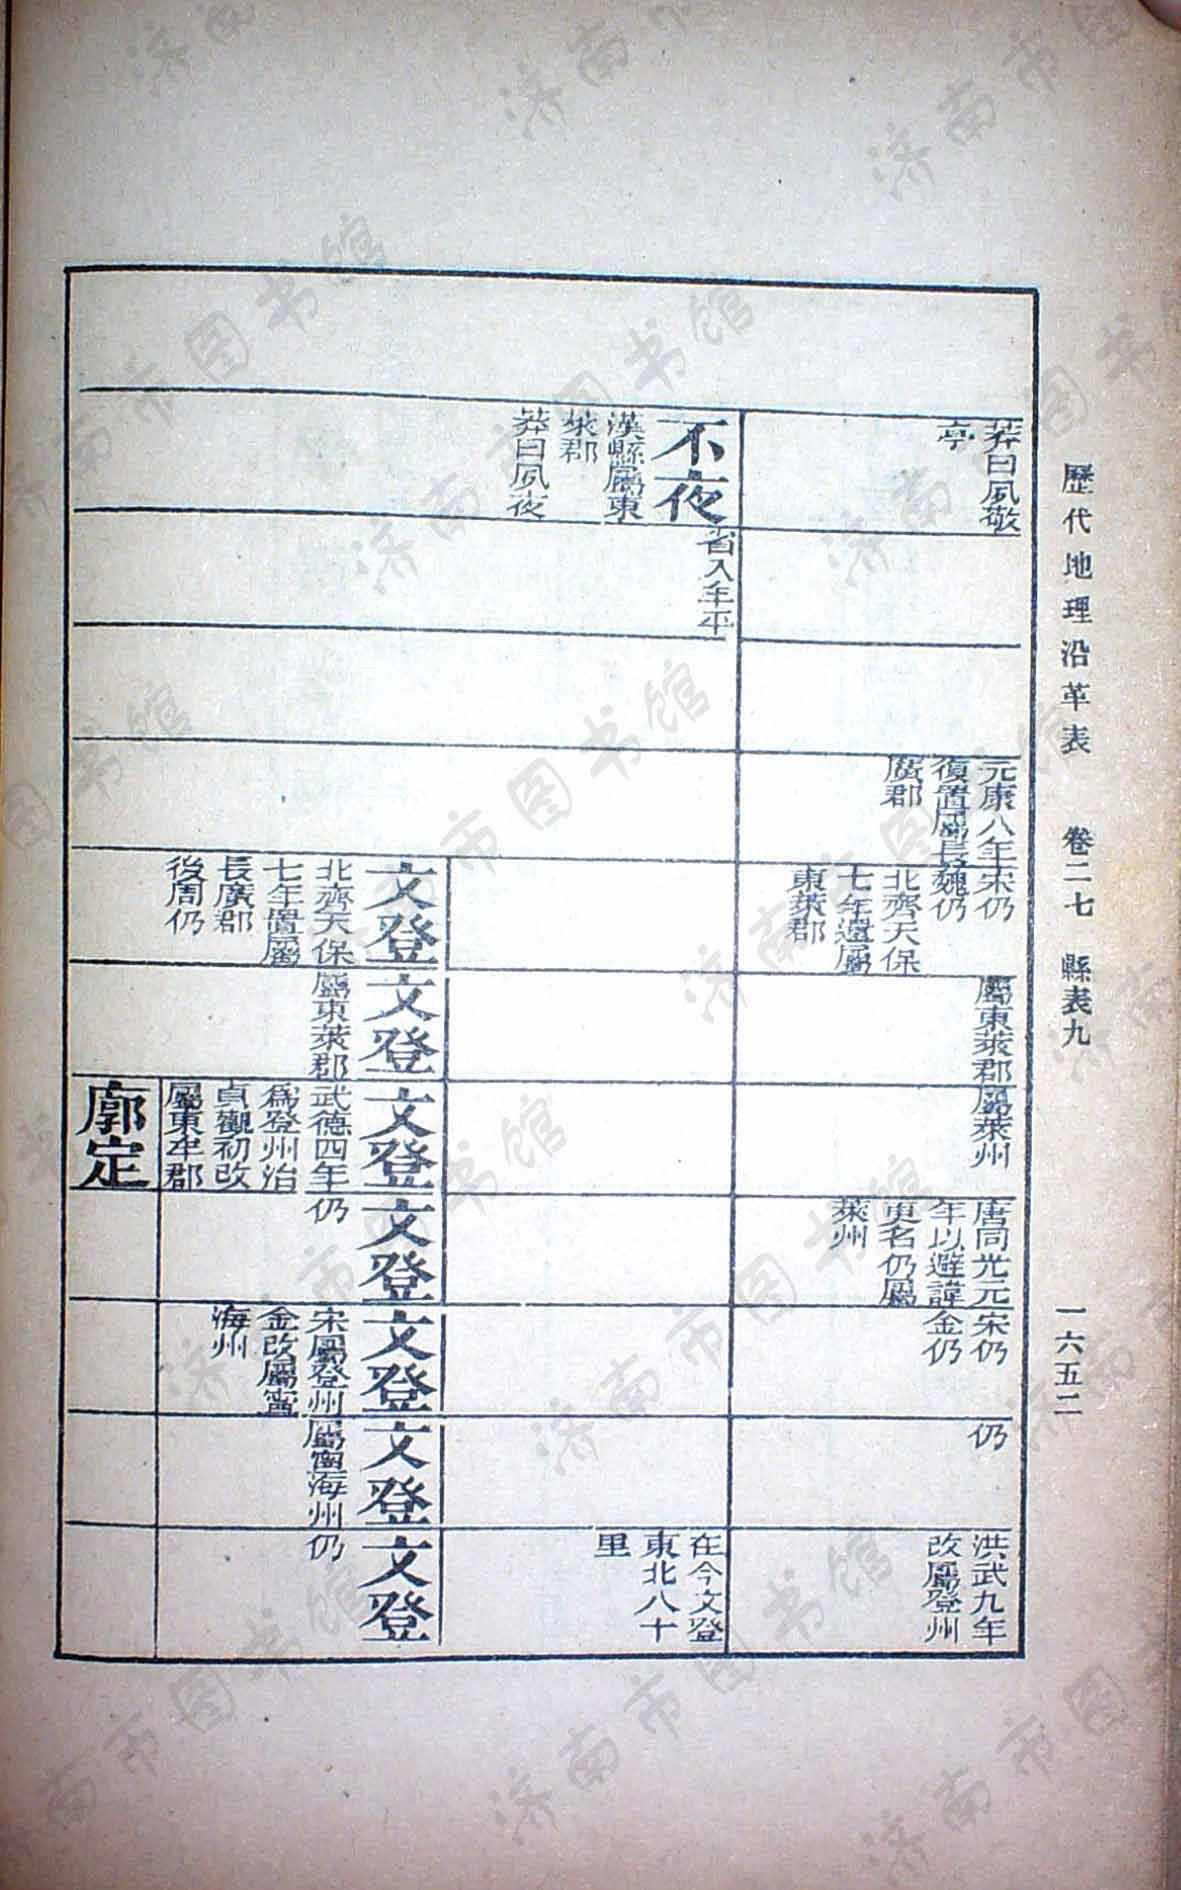 歷代地理沿革表　卷二七　縣表九　一六五二
莽曰夙敬
亭
元康八年
復置屬長
廣郡
宋仍
魏仍
北齊天保
七年還屬
東萊郡
屬東萊郡
屬萊州
唐同光元
年以避諱
更名仍屬
萊州
宋仍
金仍
仍
洪武九年
改屬登州
不夜
漢縣屬東
萊郡
莽曰夙夜
省入年平
在今文登
東北八十
里
文登
北齊天保
七年置屬
長廣郡
後周仍
文登
屬東萊郡
文登
武德四年
爲登州治
貞觀初改
屬東牟郡
文登
仍
文登
宋屬登州
金改屬寧
海州
文登
屬寧海州
文登
仍
廓定
济南市图书馆